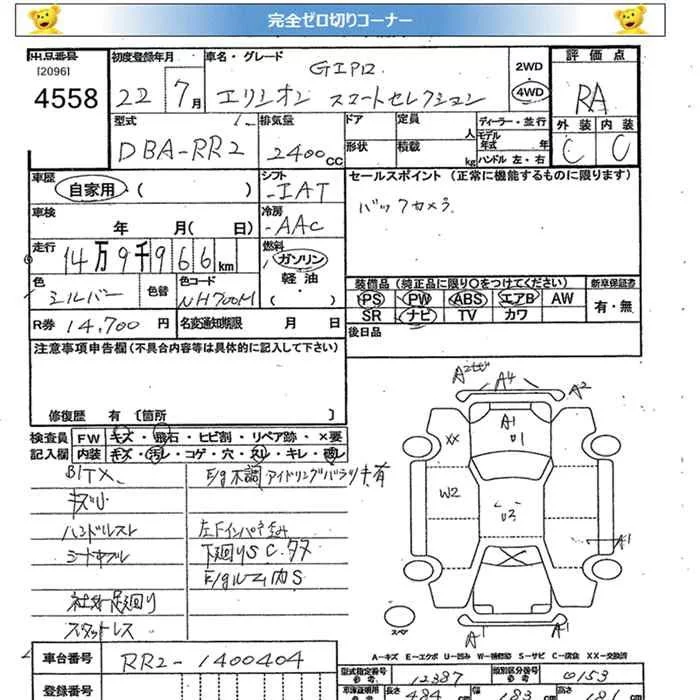 完全ゼロ切りコーナー
出品番号 初度登録年月 車名・グレード 2WD 評価点
[2096]
4558 22 7月 エリシオン スマートセレクション 4WD RA
型式 排気量 ドア 定員 人 ディーラー・並行 外装 内装
DBA-RR2 2400cc 形状 積載 kg モデル年式 年 ハンドル 左・右 C C
車歴 シフト セールスポイント(正常に機能するものに限ります)
自家用・( ) IAT バックカメラ
車検 年 月( 日) 冷房 AAC
走行 14万9千966km 燃料 ガソリン
軽油・( )
色 シルバー 色替 色コード NH700M
装備品(純正品に限り○をつけてください) 新車保証書
PS PW ABS エアB AW 有・無
SR ナビ TV カワ
R券 14,700円 名変通知期限 月 日 後日品
注意事項申告欄(不具合内容等は具体的に記入して下さい)
修復歴 有〔箇所 〕
検査員 FW キズ・飛石・ヒビ割・リペア跡・×要
記入欄 内装 キズ・汚レ・コゲ・穴・スレ・キレ・
BITX E/g不調 アイドリングバラツキ有
キズ小
左Fインパネ
下廻りSC.
E/gルーム内S
スタットレス
A2 A4 A2
A1 U1
XX
W2
U2
A1
A1 A1
スペア
A-キズ E-エクボ U-凹み W-補修跡 S-サビ C-腐食 XX-交換済
車台番号 RR2-1400404
型式指定番号 参考 12387 類別区分番号 参考 0153
登録番号 長さ 484 cm 幅 183 cm 高さ 181 cm